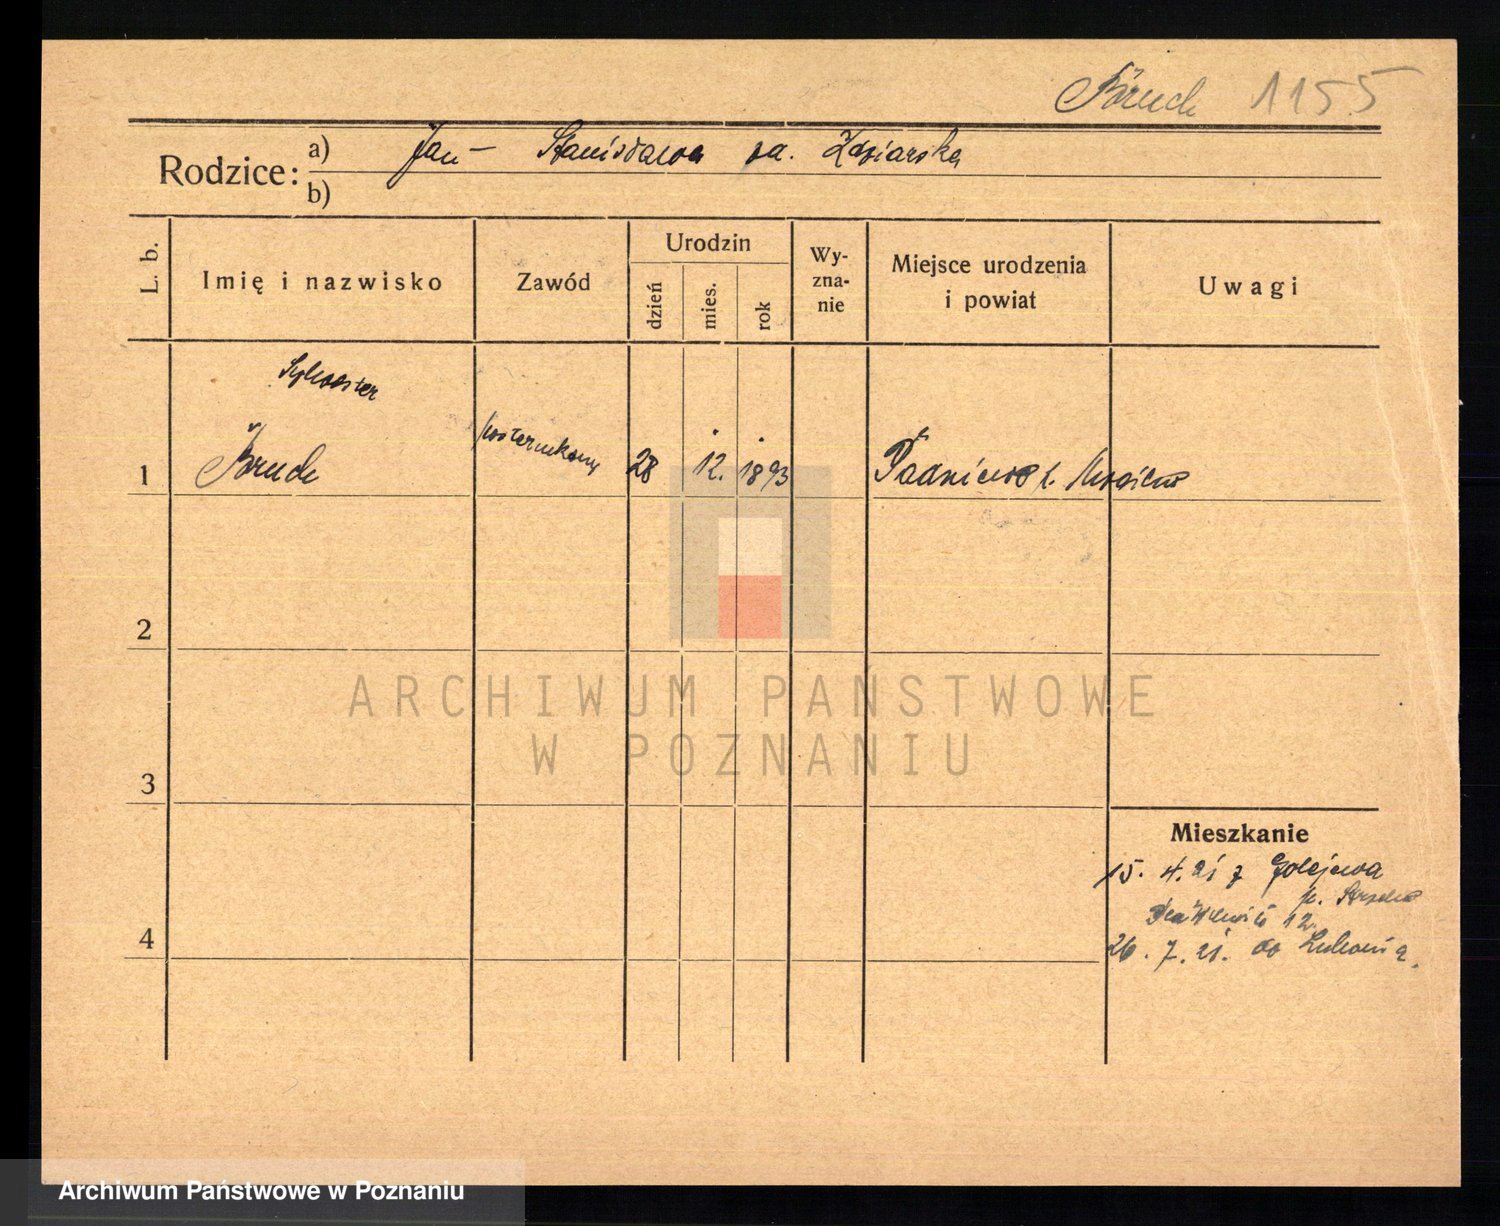 Bruch 1155
Rodzice: a) Jan — Stanisława
b)
L. b.
Imię i nazwisko
Zawód
Urodzin
dzień
mies.
rok
Wy-
zna-
nie
Miejsce urodzenia
i powiat
Uwagi
Sylwester
1 Bruch posterunkowy 28 12. 1893 Padniewo Mogilno
2
3
4
Mieszkanie
15. 4. 21 z Golejewa
12.
26. 7. 21. do Lubonia.
ARCHIWUM PAŃSTWOWE
W POZNANIU
Archiwum Państwowe w Poznaniu